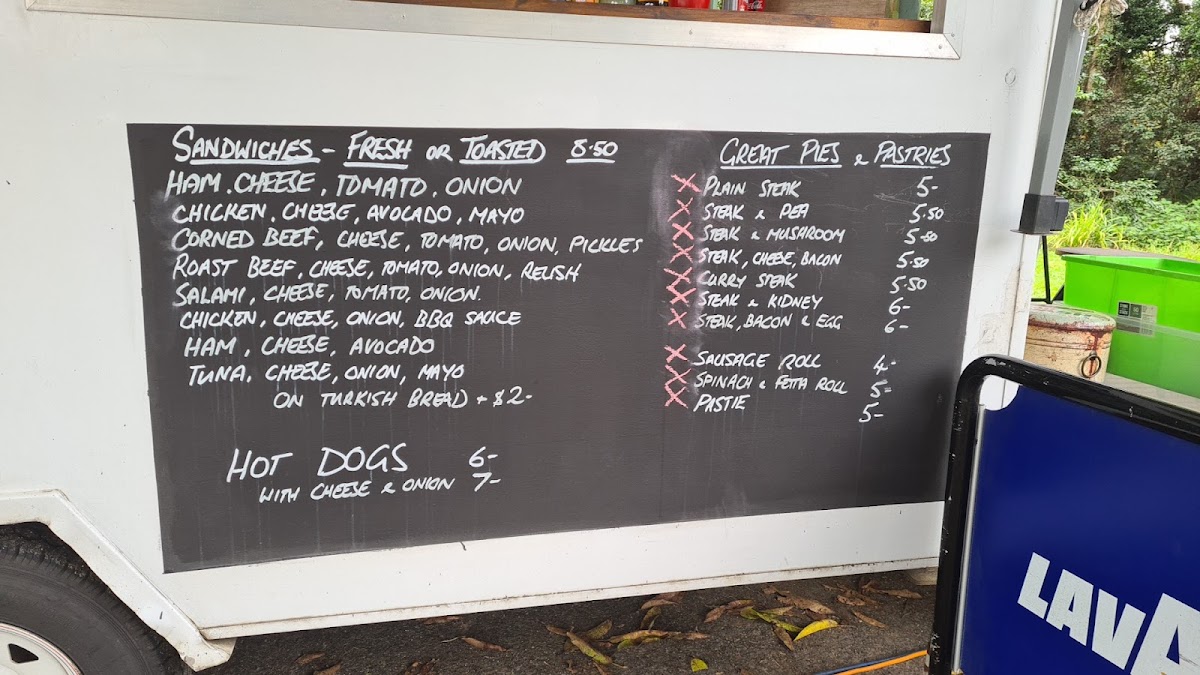 SANDWICHES - FRESH OR TOASTED 8.50
HAM, CHEESE, TOMATO, ONION
CHICKEN, CHEESE, AVOCADO, MAYO
CORNED BEEF, CHEESE, TOMATO, ONION, PICKLES
ROAST BEEF, CHEESE, TOMATO, ONION, RELISH
SALAMI, CHEESE, TOMATO, ONION.
CHICKEN, CHEESE, ONION, BBQ SAUCE
HAM, CHEESE, AVOCADO
TUNA, CHEESE, ONION, MAYO
ON TURKISH BREAD + $2-
HOT DOGS 6-
WITH CHEESE & ONION 7-
GREAT PIES & PASTRIES
X PLAIN STEAK 5-
X STEAK & PEA 5.50
X STEAK & MUSHROOM 5.50
X STEAK, CHEESE, BACON 5.50
X CURRY STEAK 5.50
X STEAK & KIDNEY 6-
X STEAK, BACON & EGG 6-
X SAUSAGE ROLL 4-
X SPINACH & FETTA ROLL 5-
X PASTIE 5-
LAVA